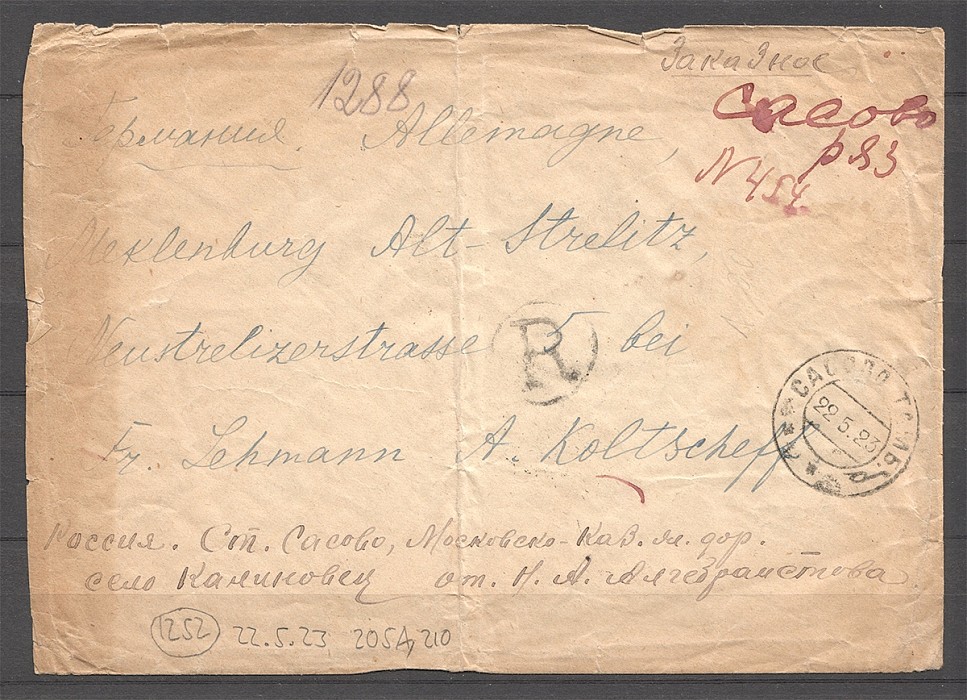 Заказное
1288
Сасово
ряз
N 454
Германия. Allemagne,
Meklenburg Alt-Strelitz,
Neustrelizerstrasse 5 bei
R
Fr. Lehmann A. Koltscheff
САСОВО ТАМБ.
22.5.23
Россия. Ст. Сасово, Московско-Каз. жл. дор.
село Калиновец от. Н. А.
1252 22.5.23 205A, 210